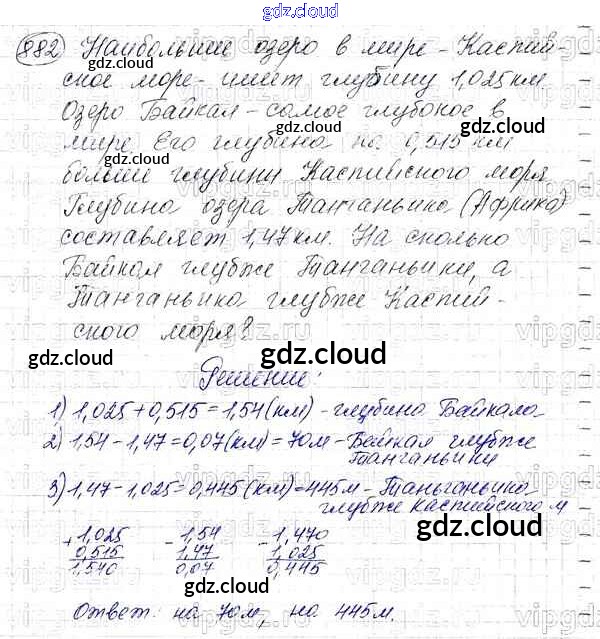 gdz.cloud
882 Наибольшее озеро в мире - Каспий-
gdz.cloud
ское море - имеет глубину 1,025 км.
Озеро Байкал - самое глубокое в
мире. Его глубина на 0,515 км
gdz.cloud
больше глубины Каспийского моря.
Глубина озера Танганьика (Африка)
составляет 1,47 км. На сколько
Байкал глубже Танганьики, а
gdz.cloud
Танганьика глубже Каспий-
ского моря?
gdz.cloud
gdz.cloud
Решение:
gdz.cloud
1) 1,025+0,515=1,54(км) - глубина Байкала
2) 1,54-1,47=0,07(км)=70м - Байкал глубже
Танганьики
gdz.cloud
3) 1,47-1,025=0,445(км)=445м - Таньганьика
глубже Каспийского м
gdz.cloud
+ 1,025 - 1,54 - 1,470
0,515 1,47 1,025
1,540 0,07 0,445
gdz.cloud
gdz.cloud
Ответ: на 70м, на 445м.
gdz.cloud